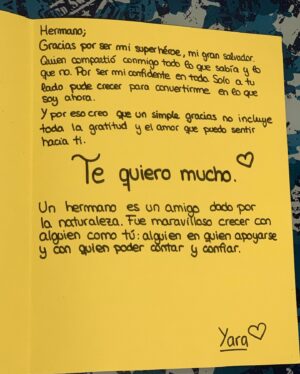 Hermano;
Gracias por ser mi superhéroe, mi gran salvador.
Quien compartió conmigo todo lo que sabía y lo
que no. Por ser mi confidente en todo. Solo a tu
lado pude crecer para convertirme en lo que
soy ahora.
Y por eso creo que un simple gracias no incluye
toda la gratitud y el amor que puedo sentir
hacia ti.
Te quiero mucho.
Un hermano es un amigo dado por
la naturaleza. Fue maravilloso crecer con
alguien como tú: alguien en quien apoyarse
y con quien poder contar y confiar.
Yara